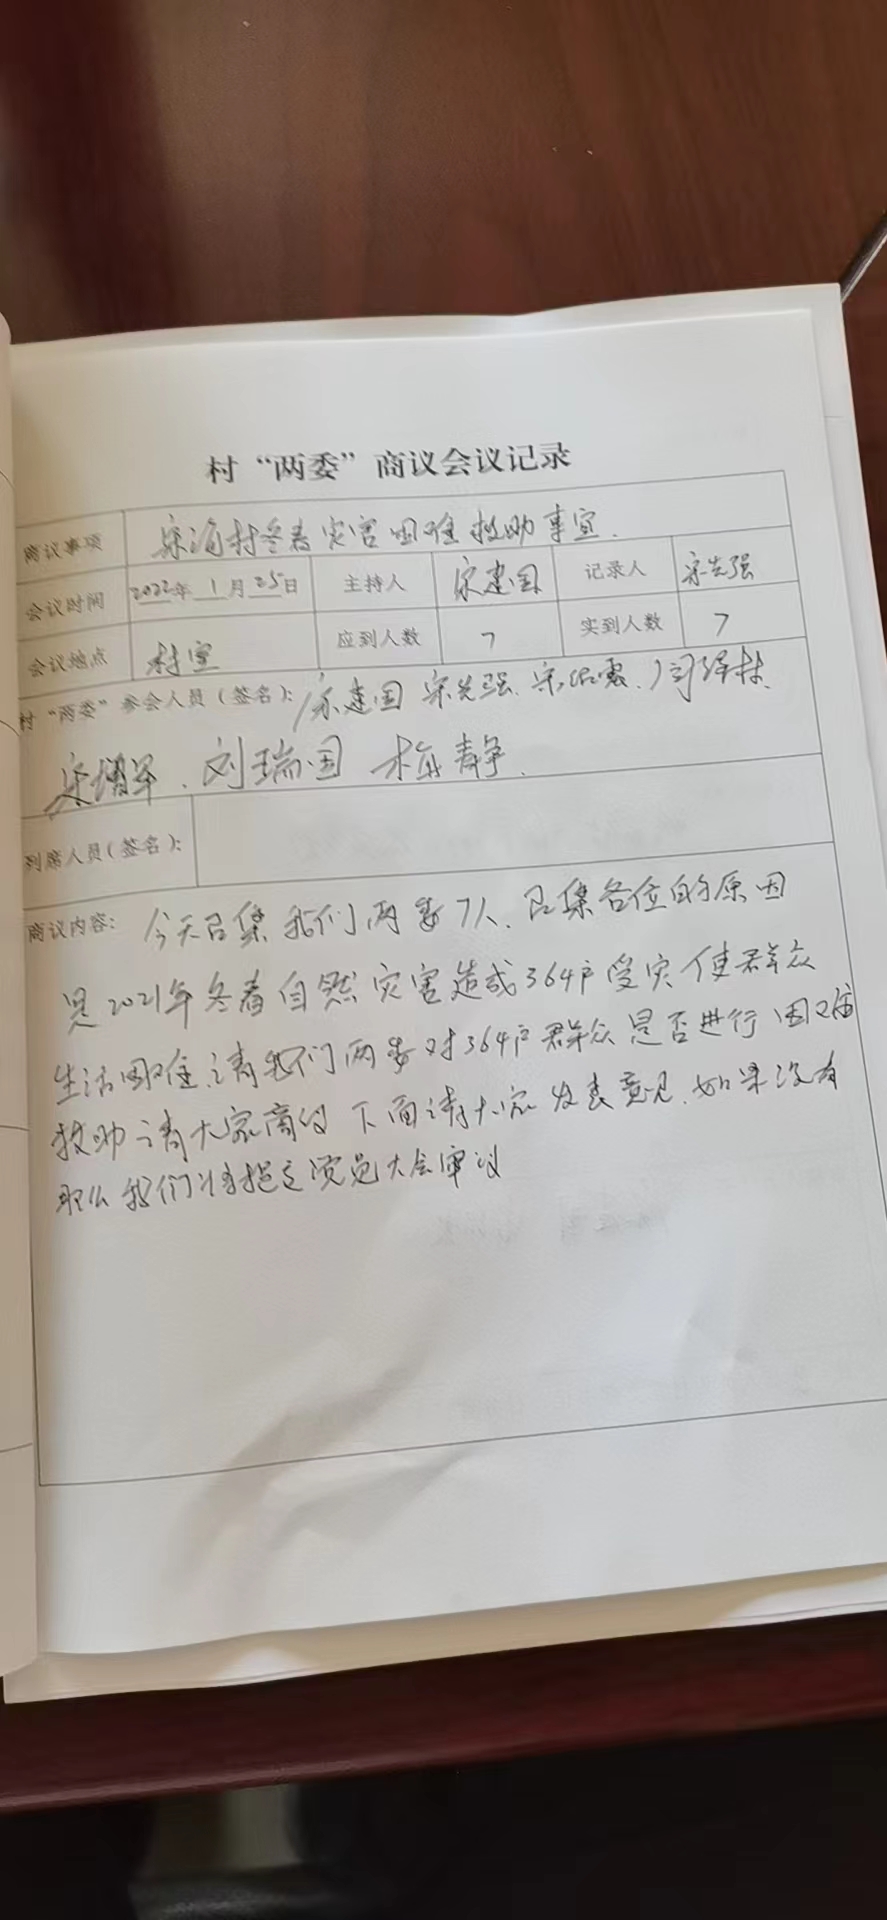 村“两委”商议会议记录
商议事项 宋海村冬春灾害困难救助事宜.
会议时间 2022年 1月 25日 主持人 宋建国 记录人 宋先强
会议地点 村室 应到人数 7 实到人数 7
村“两委”参会人员(签名): 宋建国 宋先强. 宋
宋增军. 刘瑞国 梅静.
列席人员(签名):
商议内容: 今天召集我们两委7人、召集各位的原因
是2021年冬春自然灾害造成364户受灾使群众
生活困难.请我们两委对364户群众是否进行困难
救助请大家商议 下面请大家发表意见.如果没有
那么我们将提交党员大会审议